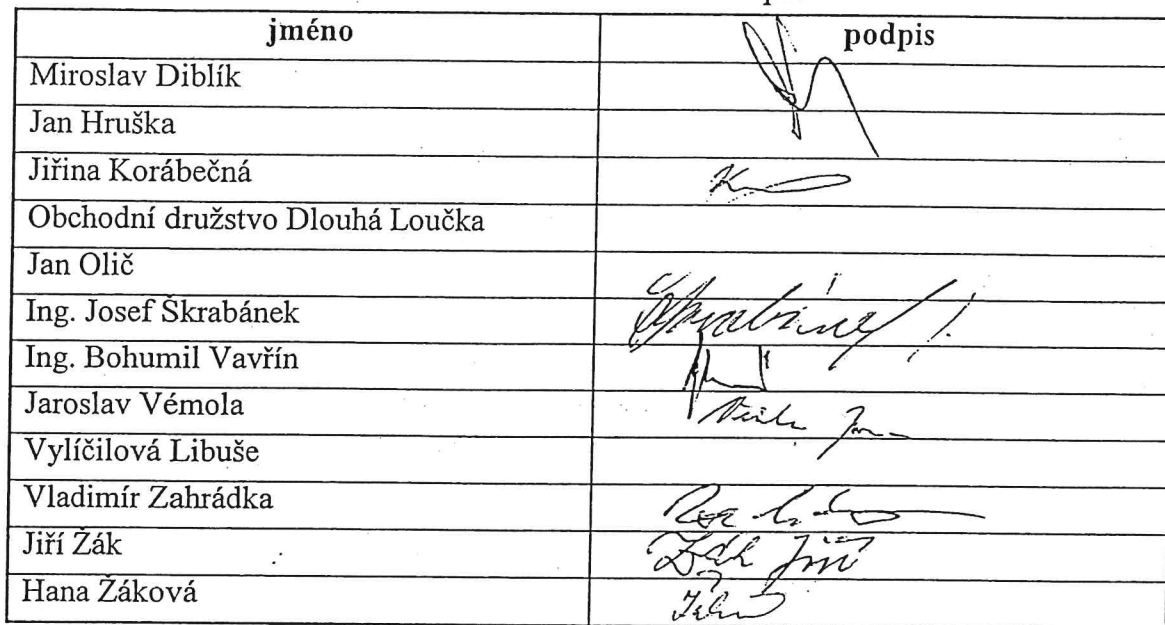 jméno podpis
Miroslav Diblík
Jan Hruška
Jiřina Korábečná
Obchodní družstvo Dlouhá Loučka
Jan Olič
Ing. Josef Škrabánek Škrabánek
Ing. Bohumil Vavřín
Jaroslav Vémola
Vylíčilová Libuše
Vladimír Zahrádka
Jiří Žák Žák Jiří
Hana Žáková